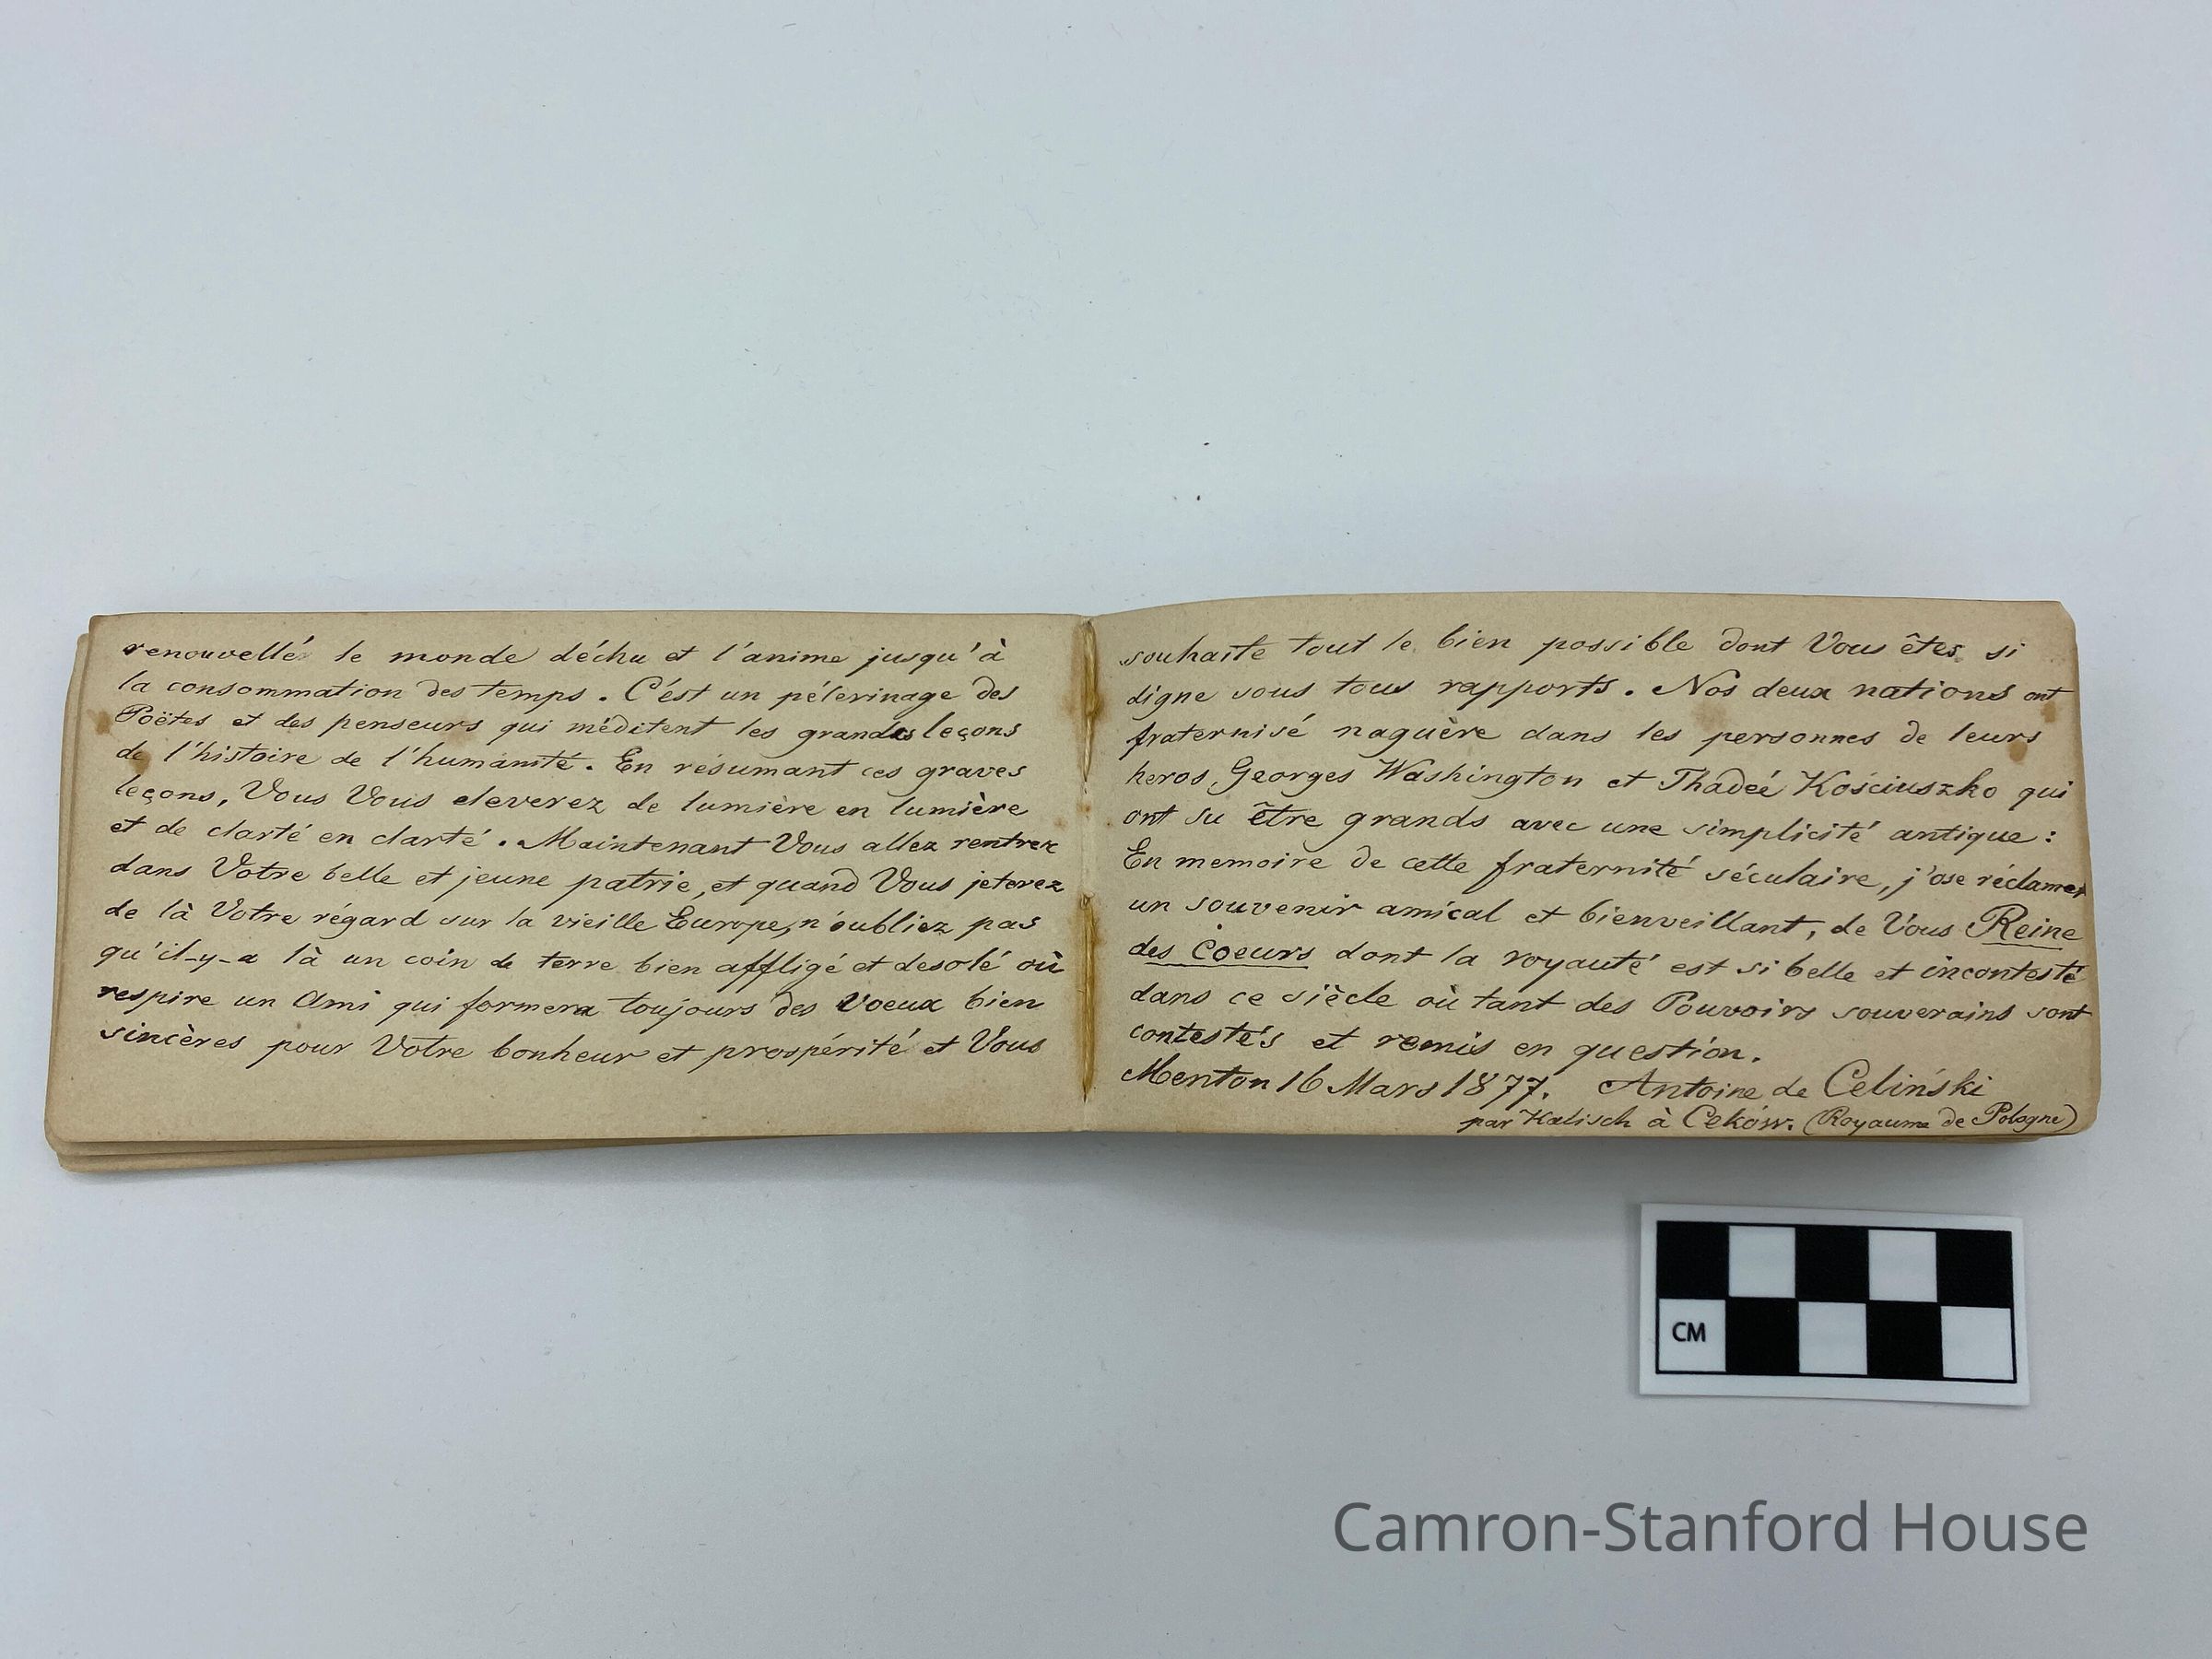 renouvellé le monde déchu et l'anime jusqu'à
la consommation des temps. C'ést un pélerinage des
Poëtes et des penseurs qui méditent les grandes leçons
de l'histoire de l'humanité. En résumant ces graves
leçons, Vous Vous eleverez de lumière en lumière
et de clarté en clarté. Maintenant Vous allez rentrer
dans Votre belle et jeune patrie, et quand Vous jeterez
de là Votre régard sur la vieille Europe, n'oubliez pas
qu'il-y-a là un coin de terre bien affligé et desolé où
respire un Ami qui formera toujours des Voeux bien
sincères pour Votre bonheur et prospérité et Vous
souhaite tout le bien possible dont Vous êtes si
digne sous tous rapports. Nos deux nations ont
fraternisé naguère dans les personnes de leurs
heros, Georges Washington et Thadeé Kościuszko qui
ont su être grands avec une simplicité antique:
En memoire de cette fraternité séculaire, j'ose réclamer
un souvenir amical et bienveillant, de Vous Reine
des Coeurs dont la royauté est si belle et incontesté
dans ce siècle où tant des Pouvoirs souverains sont
contestés et remis en question.
Menton 16 Mars 1877. Antoine de Celiński
par Kalisch à Ceków. (Royaume de Pologne)
CM
Camron-Stanford House